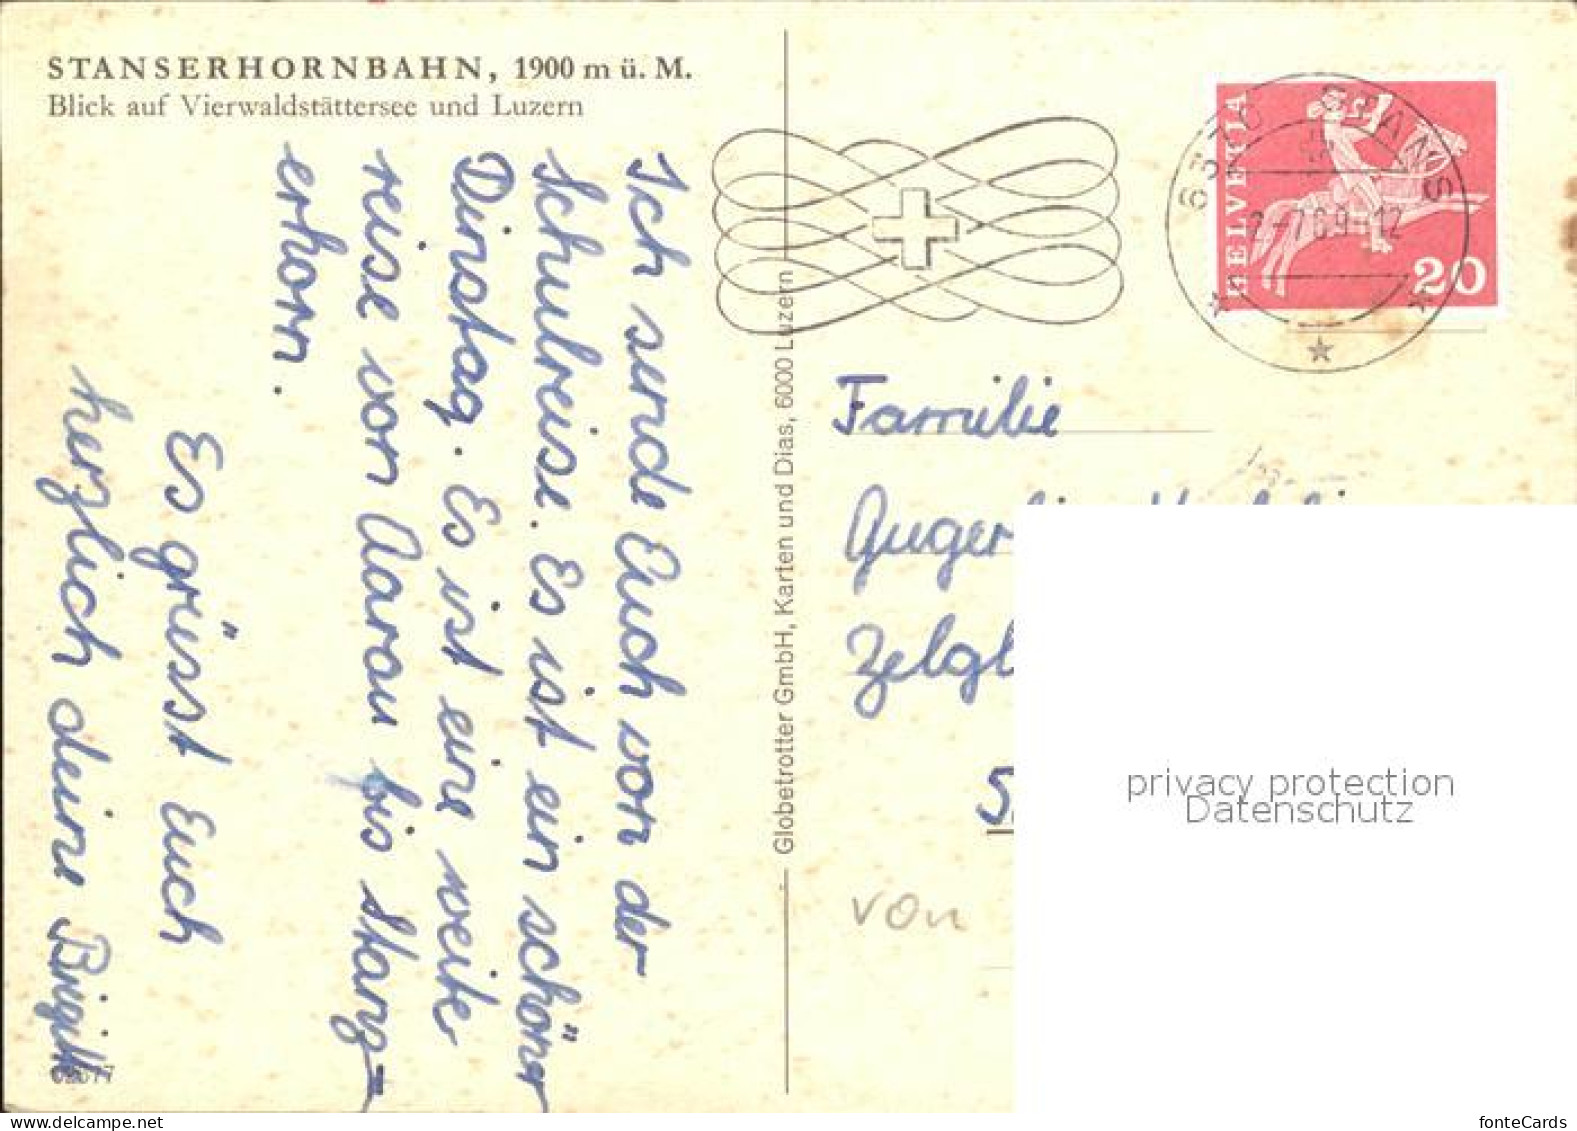 STANSERHORNBAHN, 1900 m ü. M.
Blick auf Vierwaldstättersee und Luzern
Ich sende Euch von der
Schulreise. Es ist ein schöner
Dinstag. Es ist eine weite
reise von Aarau bis Stanz=
erhorn.
Es grüsst Euch
herzlich deine Brigitt
Globetrotter GmbH, Karten und Dias, 6000 Luzern
HELVETIA
20
6370 STANS
-7.69-12
Familie
Zelgl
S
von
privacy protection
Datenschutz
www.delcampe.net
fonteCards